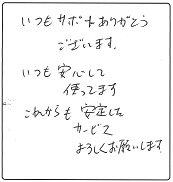 いつもサポートありがとう
ございます。
いつも安心して
使ってます
これからも安定した
サービス
よろしくお願いします